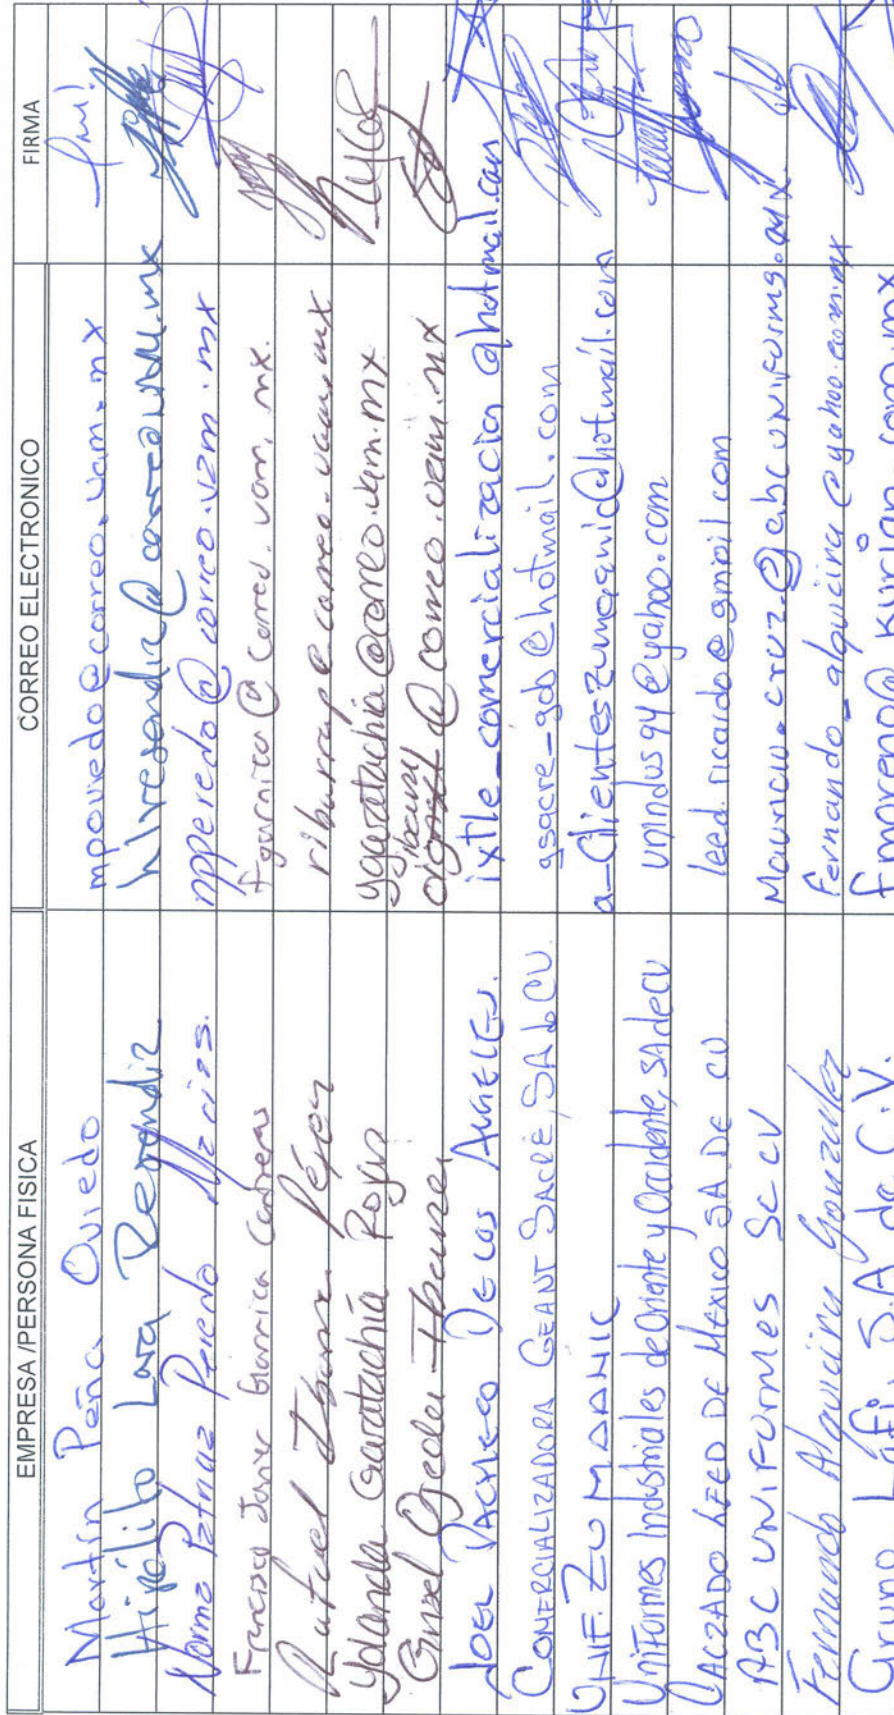 EMPRESA /PERSONA FISICA CORREO ELECTRONICO FIRMA
Martín Peña Oviedo mpoviedo@correo.uam.mx
Hipólito Lara Resendiz hlresendiz@correo.uam.mx
Norma Patricia Peredo Macías. npperedo@correo.uam.mx
Francisco Javier Garnica Contreras fgarnica@correo.uam.mx.
Rafael Ibarra Pérez ribarrap@correo.uam.mx
Yolanda Garatachía Rojas ygaratachia@correo.uam.mx
Gisel Ojeda @correo.uam.mx
JOEL PACHECO DE LOS ANGELES. ixtle_comercializacion@hotmail.com
COMERCIALIZADORA GEANT SACRE, SA de CV. gsacre_gdb@hotmail.com
UNIF. ZUMADANIC
Uniformes Industriales de Oriente y Occidente, SA de CV unindus94@yahoo.com
CALZADO LEED DE MEXICO SA DE CV leed.ricardo@gmail.com
ABC UNIFORMES SC CV
Fernando Alquicira González fernando_alquicira@yahoo.com.mx
Grupo Láfi, SA de C.V. fmoreno@kurian.com.mx